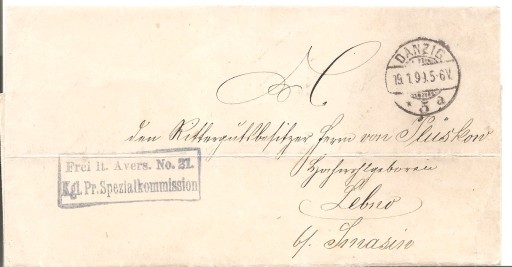 DANZIG
19.1.9 .5-6V.
* 5 a
An
den Rittergutsbesitzer Herrn von
Hochwohlgeboren
Lebno
b/ Smasin
Frei lt. Avers. No. 21.
Kgl. Pr. Spezialkommission